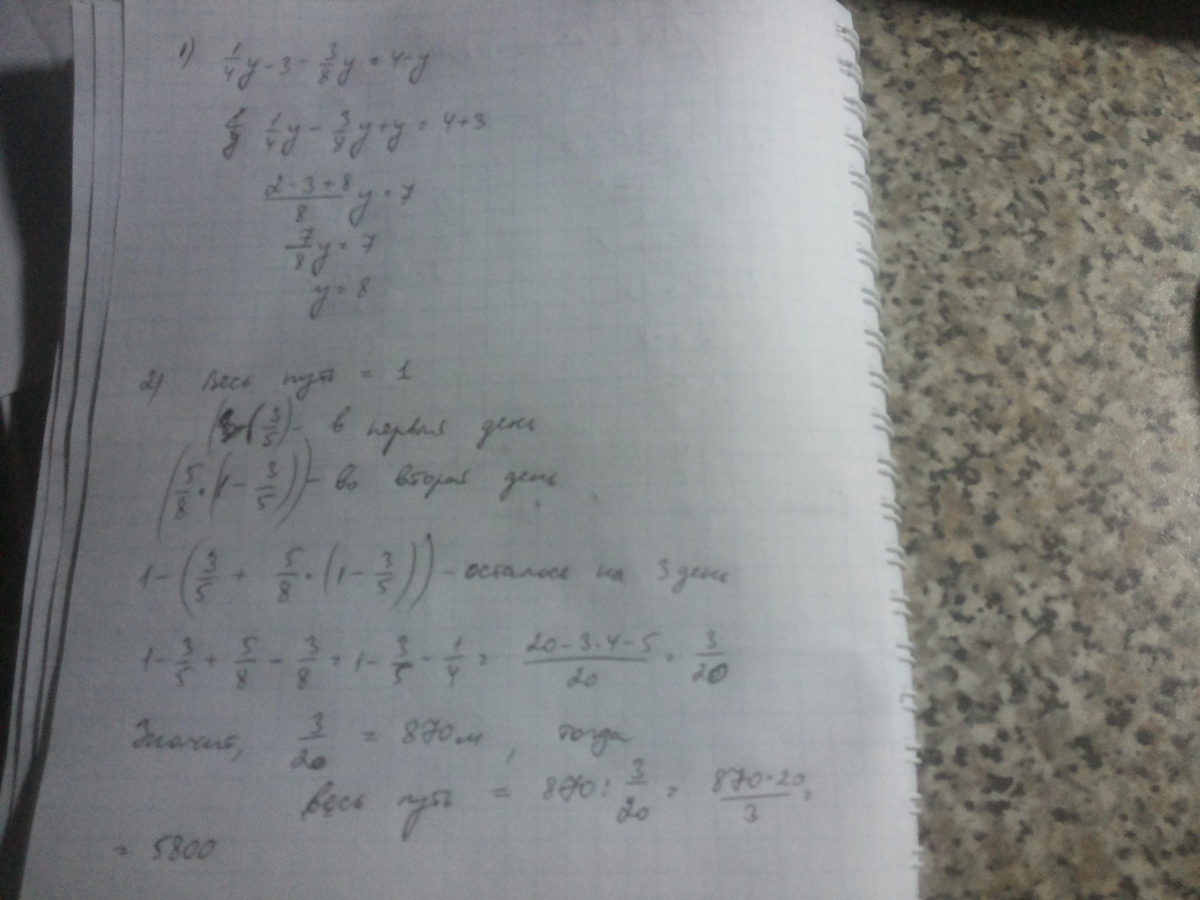 1) 1/4 y - 3 - 3/8 y = 4 - y
1/4 y - 3/8 y + y = 4 + 3
(2 - 3 + 8)/8 y = 7
7/8 y = 7
y = 8
2) Весь путь = 1
(3/5) - в первый день
(5/8 · (1 - 3/5)) - во второй день
1 - (3/5 + 5/8 · (1 - 3/5)) - осталось на 3 день
1 - 3/5 + 5/8 - 3/8 = 1 - 3/5 - 1/4 = (20 - 3·4 - 5)/20 = 3/20
Значит, 3/20 = 870 м, тогда
весь путь = 870 : 3/20 = (870·20)/3 =
= 5800